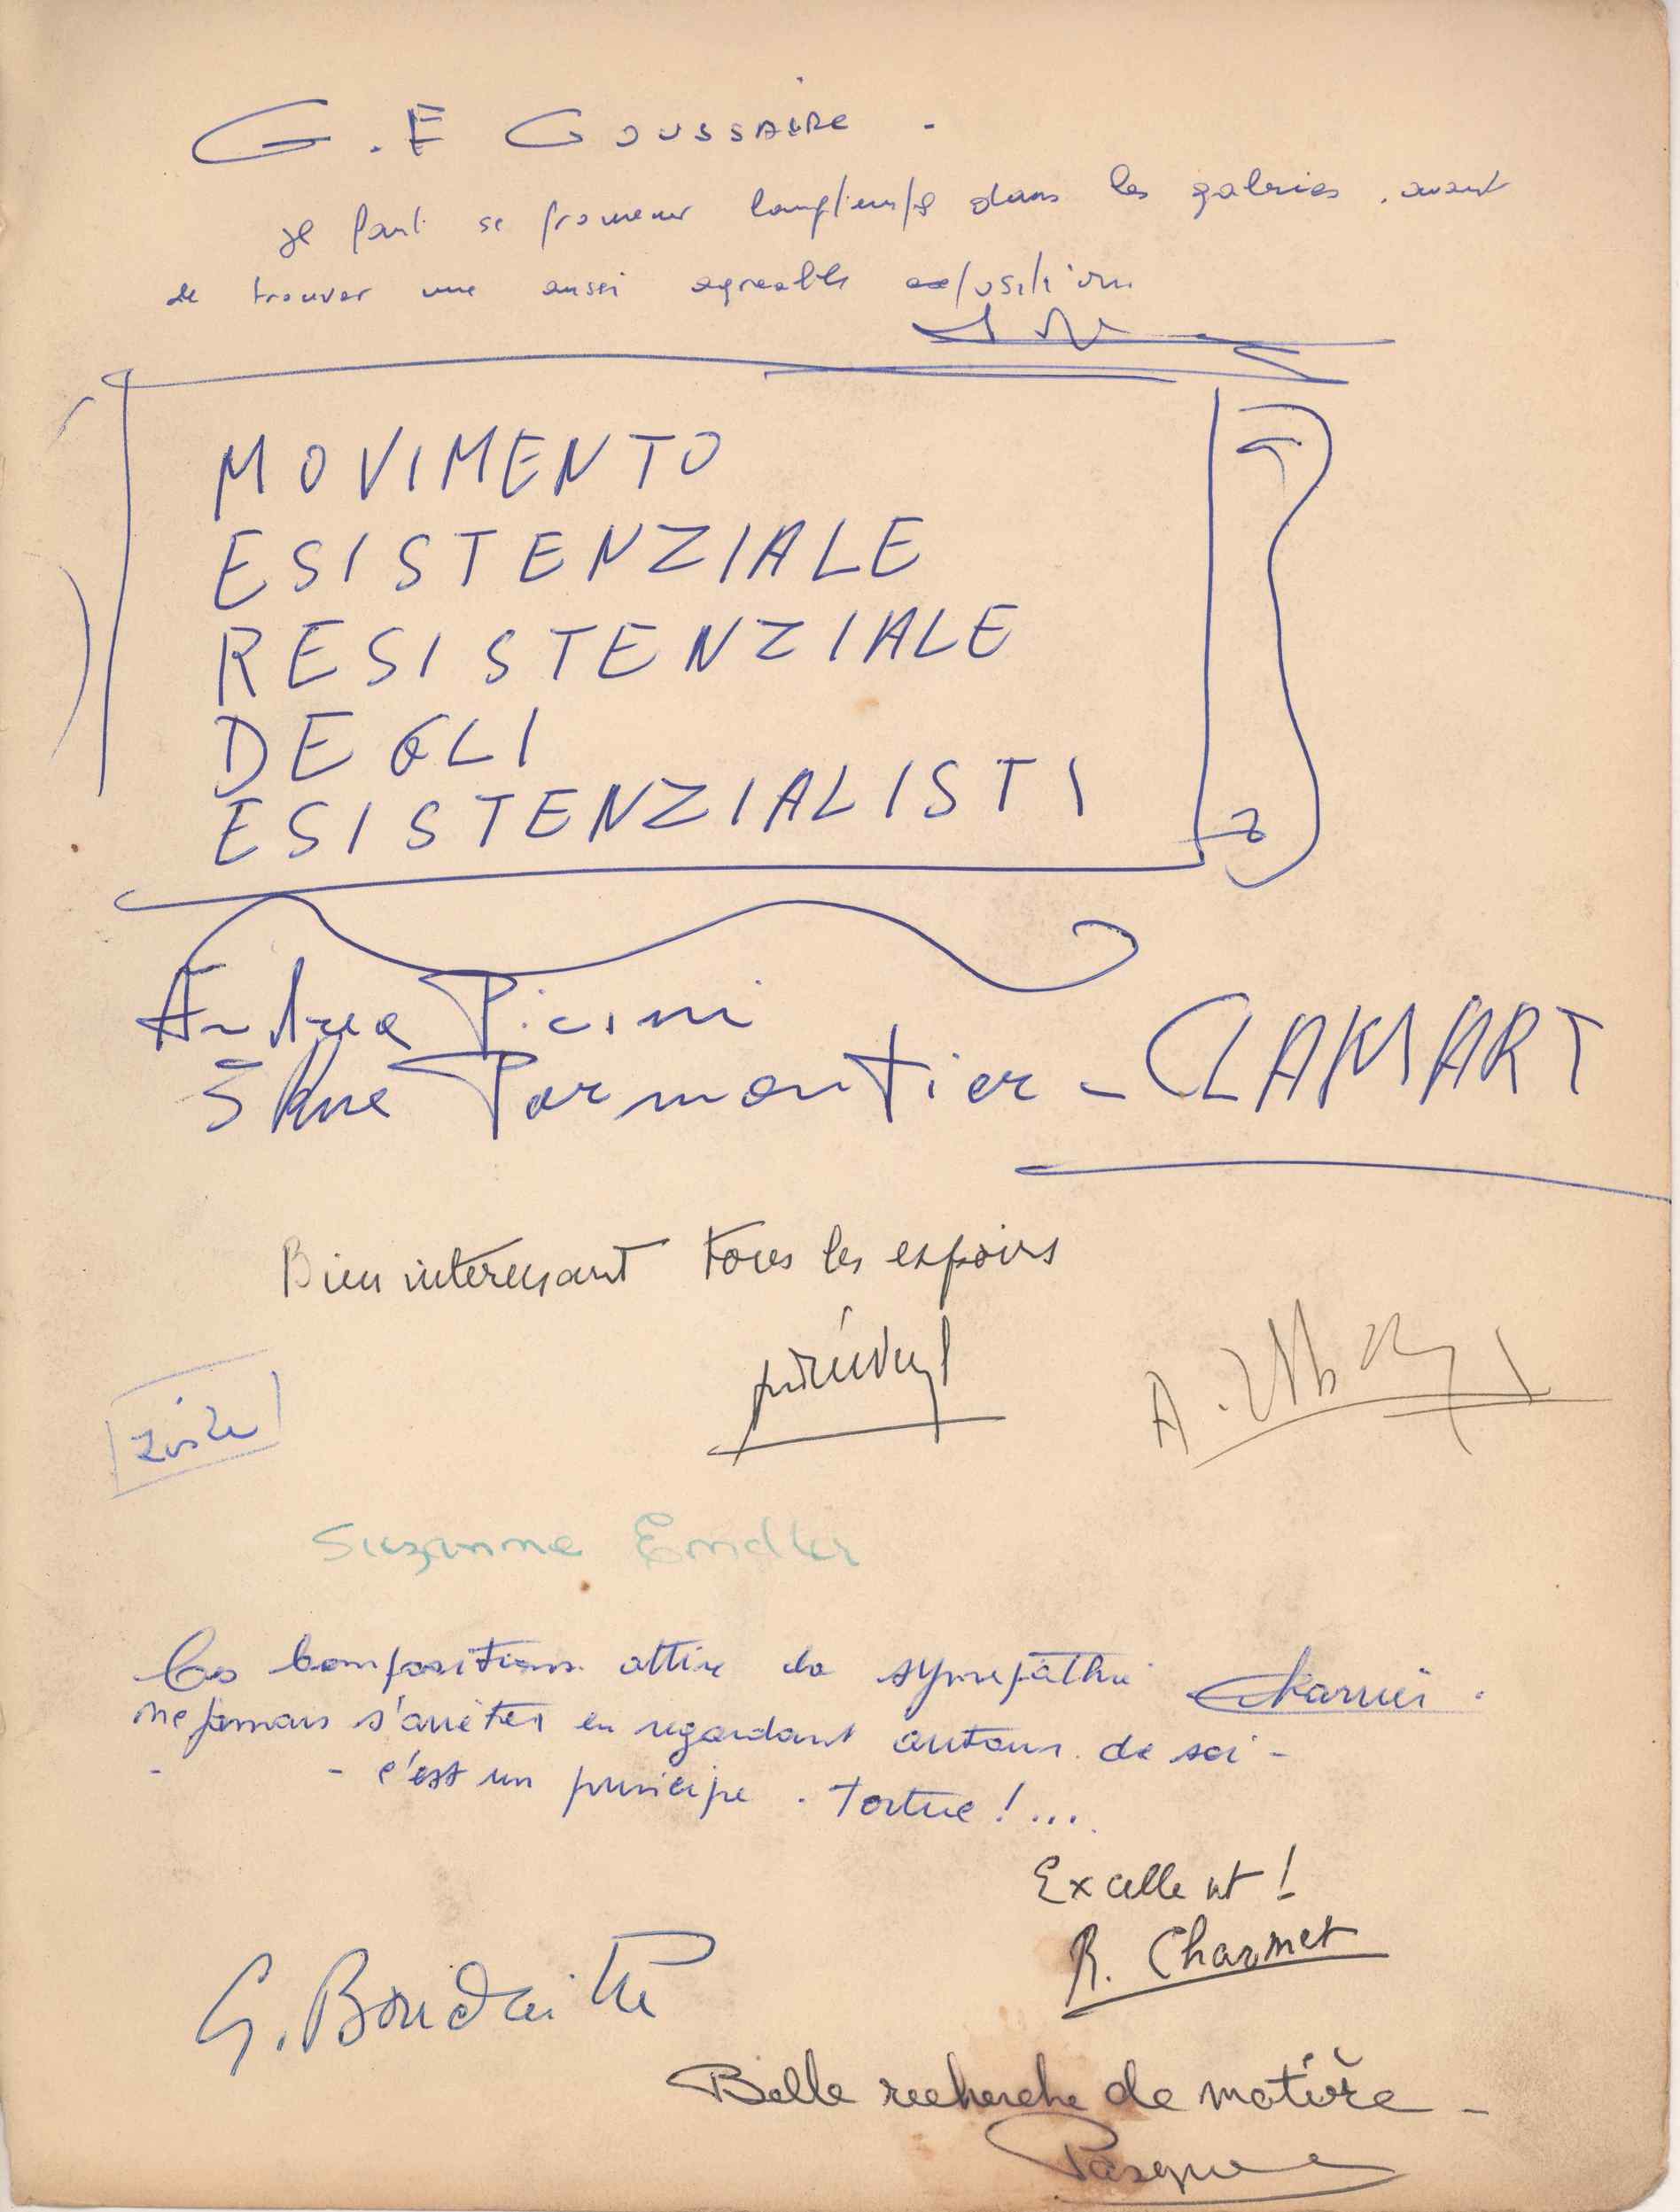 G. E GOUSSAIRE.
Il faut se promener longtemps dans les galeries, avant
de trouver une aussi agreable exposition
MOVIMENTO
ESISTENZIALE
RESISTENZIALE
DEGLI
ESISTENZIALISTI
Andrea Picini
Parmentier - CLAMART
Bien interessant tous les espoirs
A.
Suzanne Endler
Ces compositions attire la sympathie
ne jamais s'arrêter en regardant autour de soi -
- - c'est un principe. Tortue!...
Excellent!
R. Charmet
G. Boudaille
Belle recherche de matière -